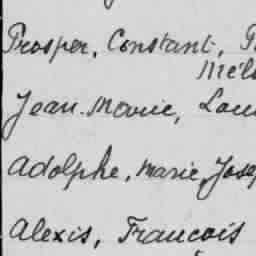 Prosper, Constant,
Jean-Marie,
Adolphe, Marie,
Alexis, François